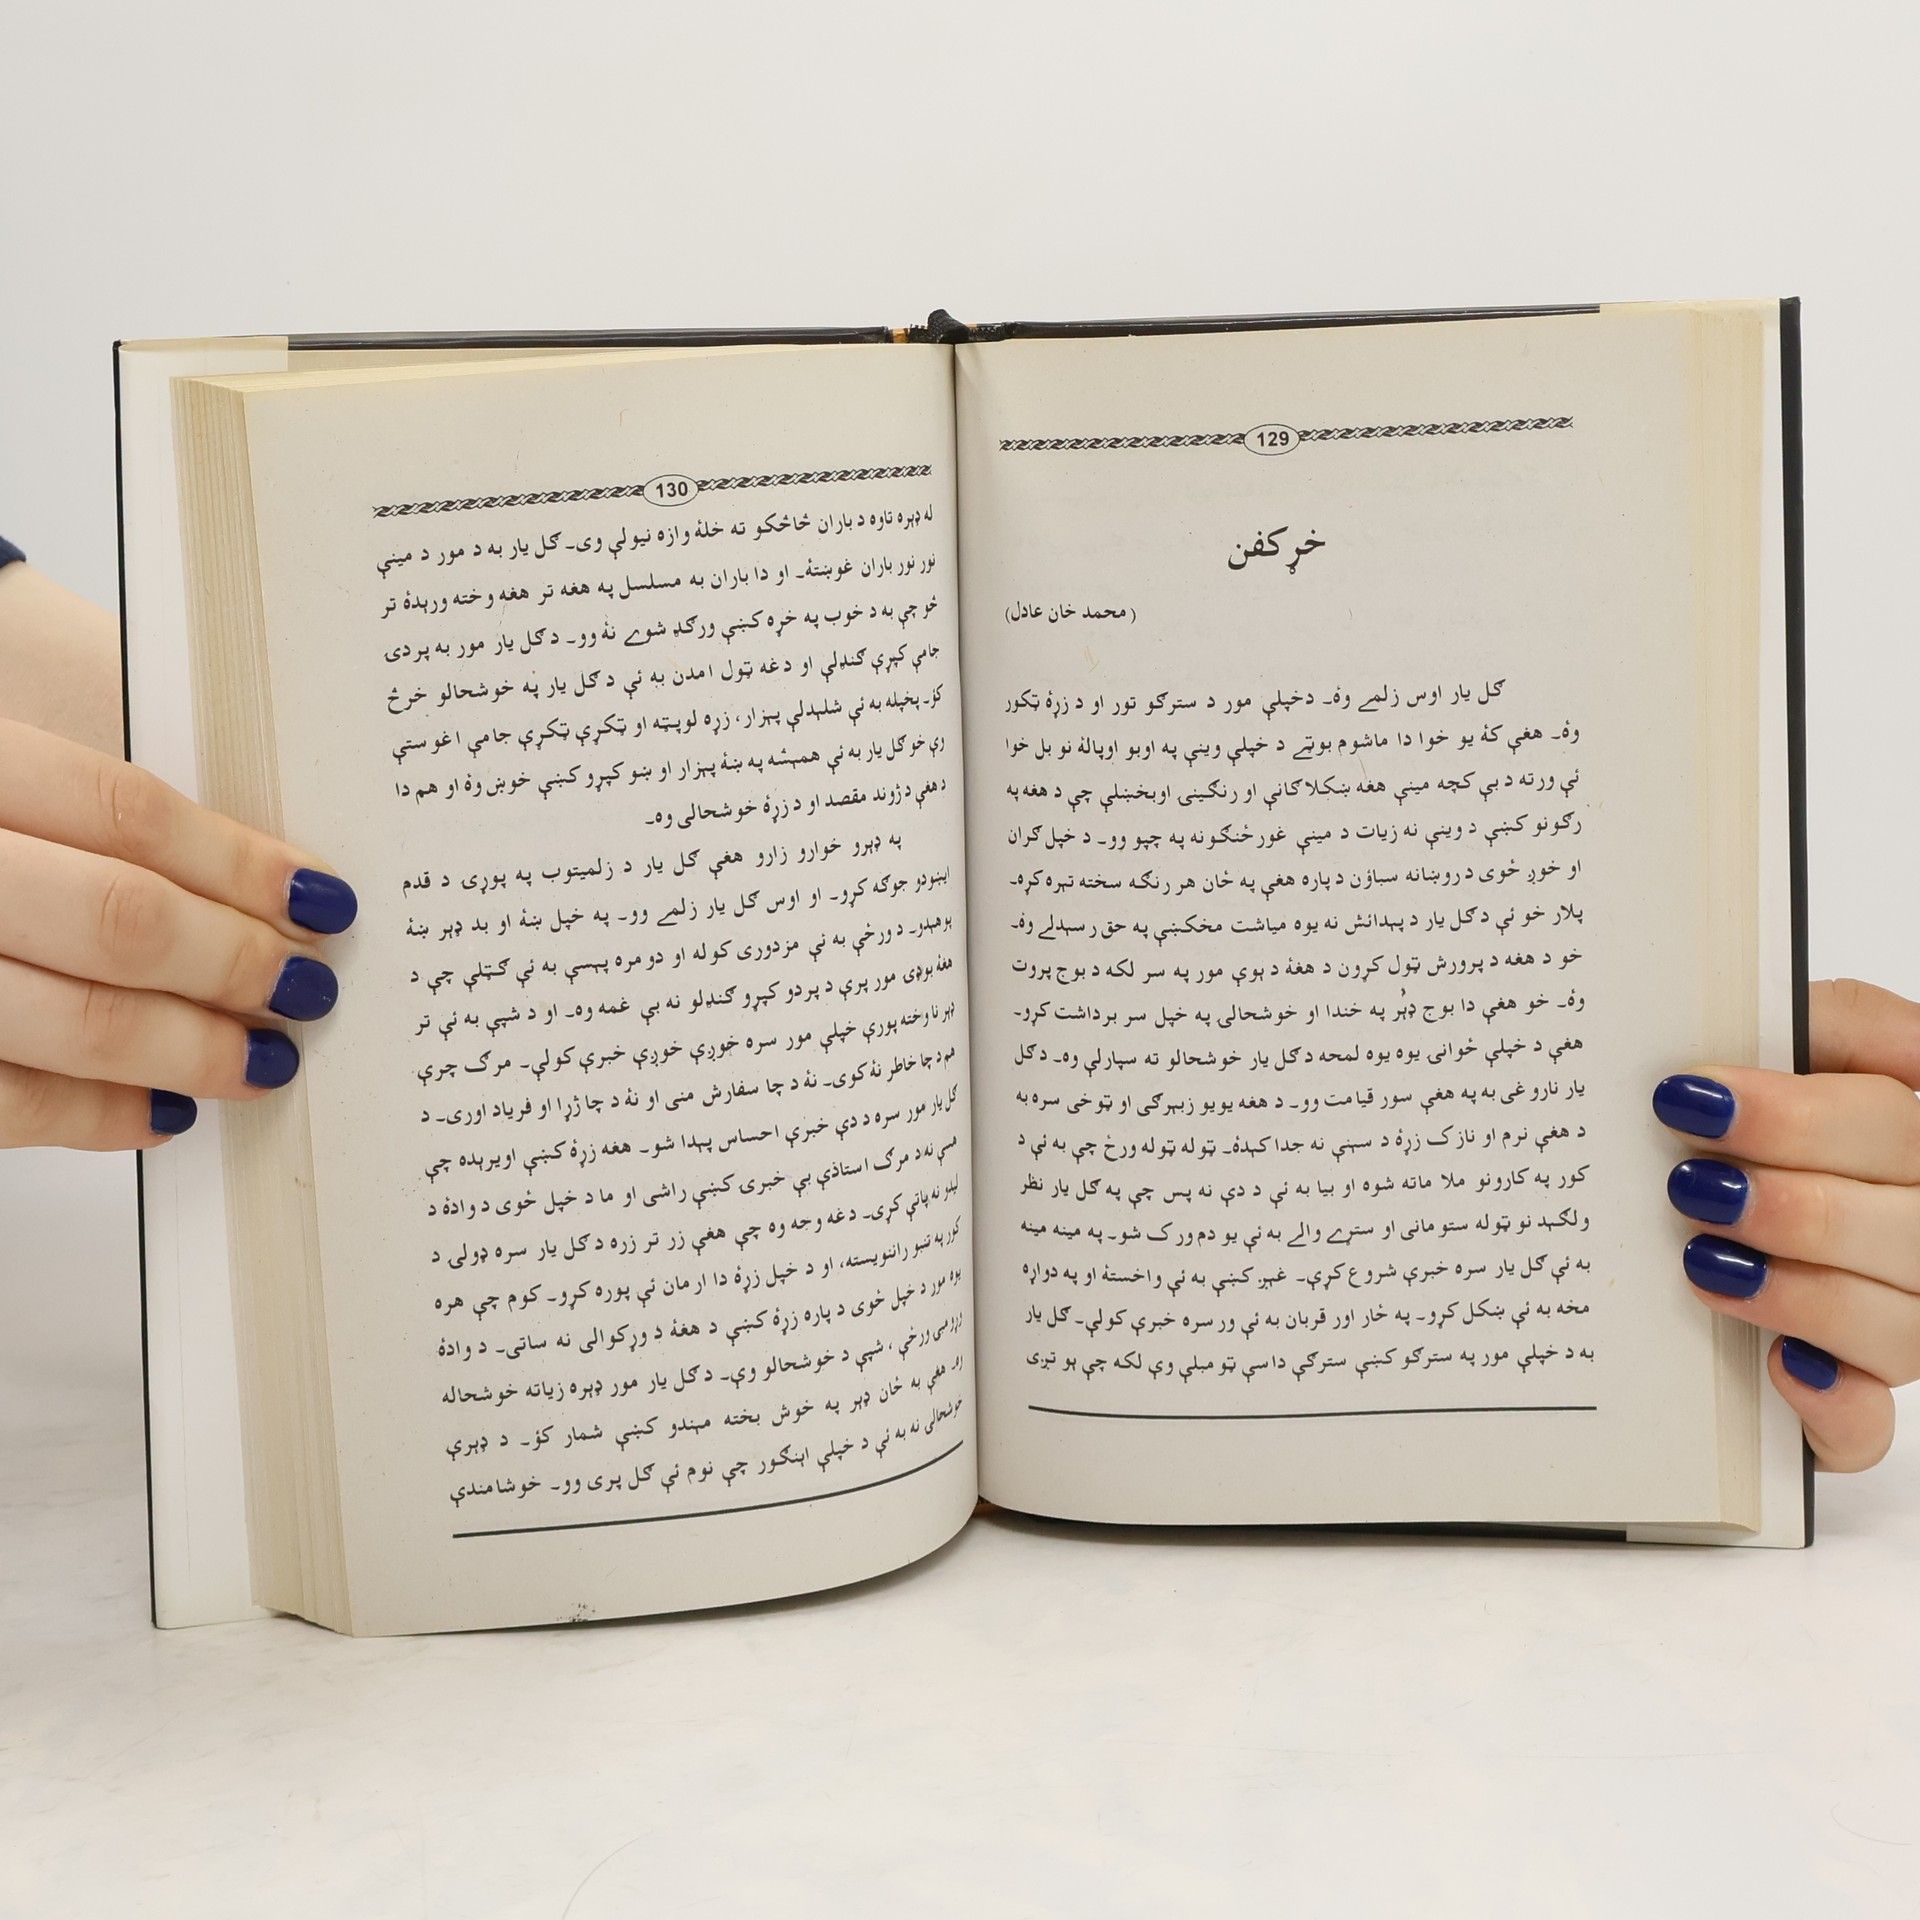 129
خړ کفن
(محمد خان عادل)
ګل يار اوس زلمے وۀ۔ دخپلې مور د سترګو تور او د زړۀ ټکور
وۀ۔ هغې کۀ يو خوا دا ماشوم بوټے د خپلې وينې په اوبو اوپالۀ نو بل خوا
ئې ورته د بې کچه مينې هغه ښکلا ګانې او رنګينۍ اوبخښلې چې د هغه په
رګونو کښې د وينې نه زيات د مينې غورځنګونه په چپو وو۔ د خپل ګران
او خوږ ځوی د روښانه سباؤن د پاره هغې په ځان هر رنګه سخته تېره کړه۔
پلار خو ئې د ګل يار د پېدائش نه يوه مياشت مخکښې په حق رسېدلے وۀ۔
خو د هغه د پرورش ټول کړون د هغۀ د ېوې مور په سر لکه د بوج پروت
وۀ۔ خو هغې دا بوج ډېر په خندا او خوشحالۍ په خپل سر برداشت کړو۔
هغې د خپلې ځوانۍ يوه يوه لمحه د ګل يار خوشحالو ته سپارلې وه۔ د ګل
يار ناروغی به په هغې سور قيامت وو۔ د هغه يو يو زبېرګی او ټوخی سره به
د هغې نرم او نازک زړۀ د سېنې نه جدا کېدۀ۔ ټوله ټوله ورځ چې به ئې د
کور په کارونو ملا ماته شوه او بيا به ئې د دې نه پس چې په ګل يار نظر
ولګېد نو ټوله ستومانی او ستړے والے به ئې يو دم ورک شو۔ په مينه مينه
به ئې ګل يار سره خبرې شروع کړې۔ غېږ کښې به ئې واخستۀ او په دواړه
مخه به ئې ښکل کړو۔ په ځار اور قربان به ئې ور سره خبرې کولې۔ ګل يار
به د خپلې مور په سترګو کښې سترګې داسې ټومبلې وې لکه چې يو تږی
130
له ډېره تاوه د باران څاڅکو ته خلۀ وازه نيولې وی۔ ګل يار به د مور د مينې
نور نور باران غوښتۀ۔ او دا باران به مسلسل په هغه تر هغه وخته ورېدۀ تر
څو چې به د خوب په خړه کښې ورګډ شوے نۀ وو۔ د ګل يار مور به پردی
جامې کپړې ګنډلې او دغه ټول امدن به ئې د ګل يار په خوشحالو خرڅ
کؤ۔ پخپله به ئې شلېدلې پېزار، زړه لوپټه او ټکړې ټکړې جامې اغوستې
وې خو ګل يار به ئې همېشه په ښۀ پېزار او ښو کپړو کښې خوښ وۀ او هم دا
د هغې د ژوند مقصد او د زړۀ خوشحالی وه۔
په ډېرو خوارو زارو هغې ګل يار د زلميتوب په پوړۍ د قدم
ايښودو جوګه کړو۔ او اوس ګل يار زلمے وو۔ په خپل ښۀ او بد ډېر ښۀ
پوهېدو۔ د ورځې به ئې مزدوری کوله او دومره پېسې به ئې ګټلې چې د
هغۀ بوډۍ مور پرې د پردو کپړو ګنډلو نه بې غمه وه۔ او د شپې به ئې تر
ډېر ناوخته پورې خپلې مور سره خوږې خوږې خبرې کولې۔ مرګ چرې
هم د چا خاطر نۀ کوی۔ نۀ د چا سفارش منی او نۀ د چا ژړا او فرياد اوری۔ د
ګل يار مور سره د دې خبرې احساس پېدا شو۔ هغه زړۀ کښې اويرېده چې
نه د مرګ استاذې بې خبرۍ کښې راشی او ما د خپل ځوی د وادۀ د
ليدو نه پاتې کړی۔ دغه وجه وه چې هغې زر تر زره د ګل يار سره ډولۍ د
کور په تنبو راننويسته، او د خپل زړۀ دا ارمان ئې پوره کړو۔ کوم چې هره
يوه مور د خپل ځوی د پاره زړۀ کښې د هغۀ د وړکوالی نه ساتی۔ د وادۀ
ورځې، شپې د خوشحالو وې۔ د ګل يار مور ډېره زياته خوشحاله
وه۔ هغې به ځان ډېر په خوش بخته مېندو کښې شمار کؤ۔ د ډېرې
خوشحالی نه به ئې د خپلې اېنګور چې نوم ئې ګل پری وو۔ خوشامندې